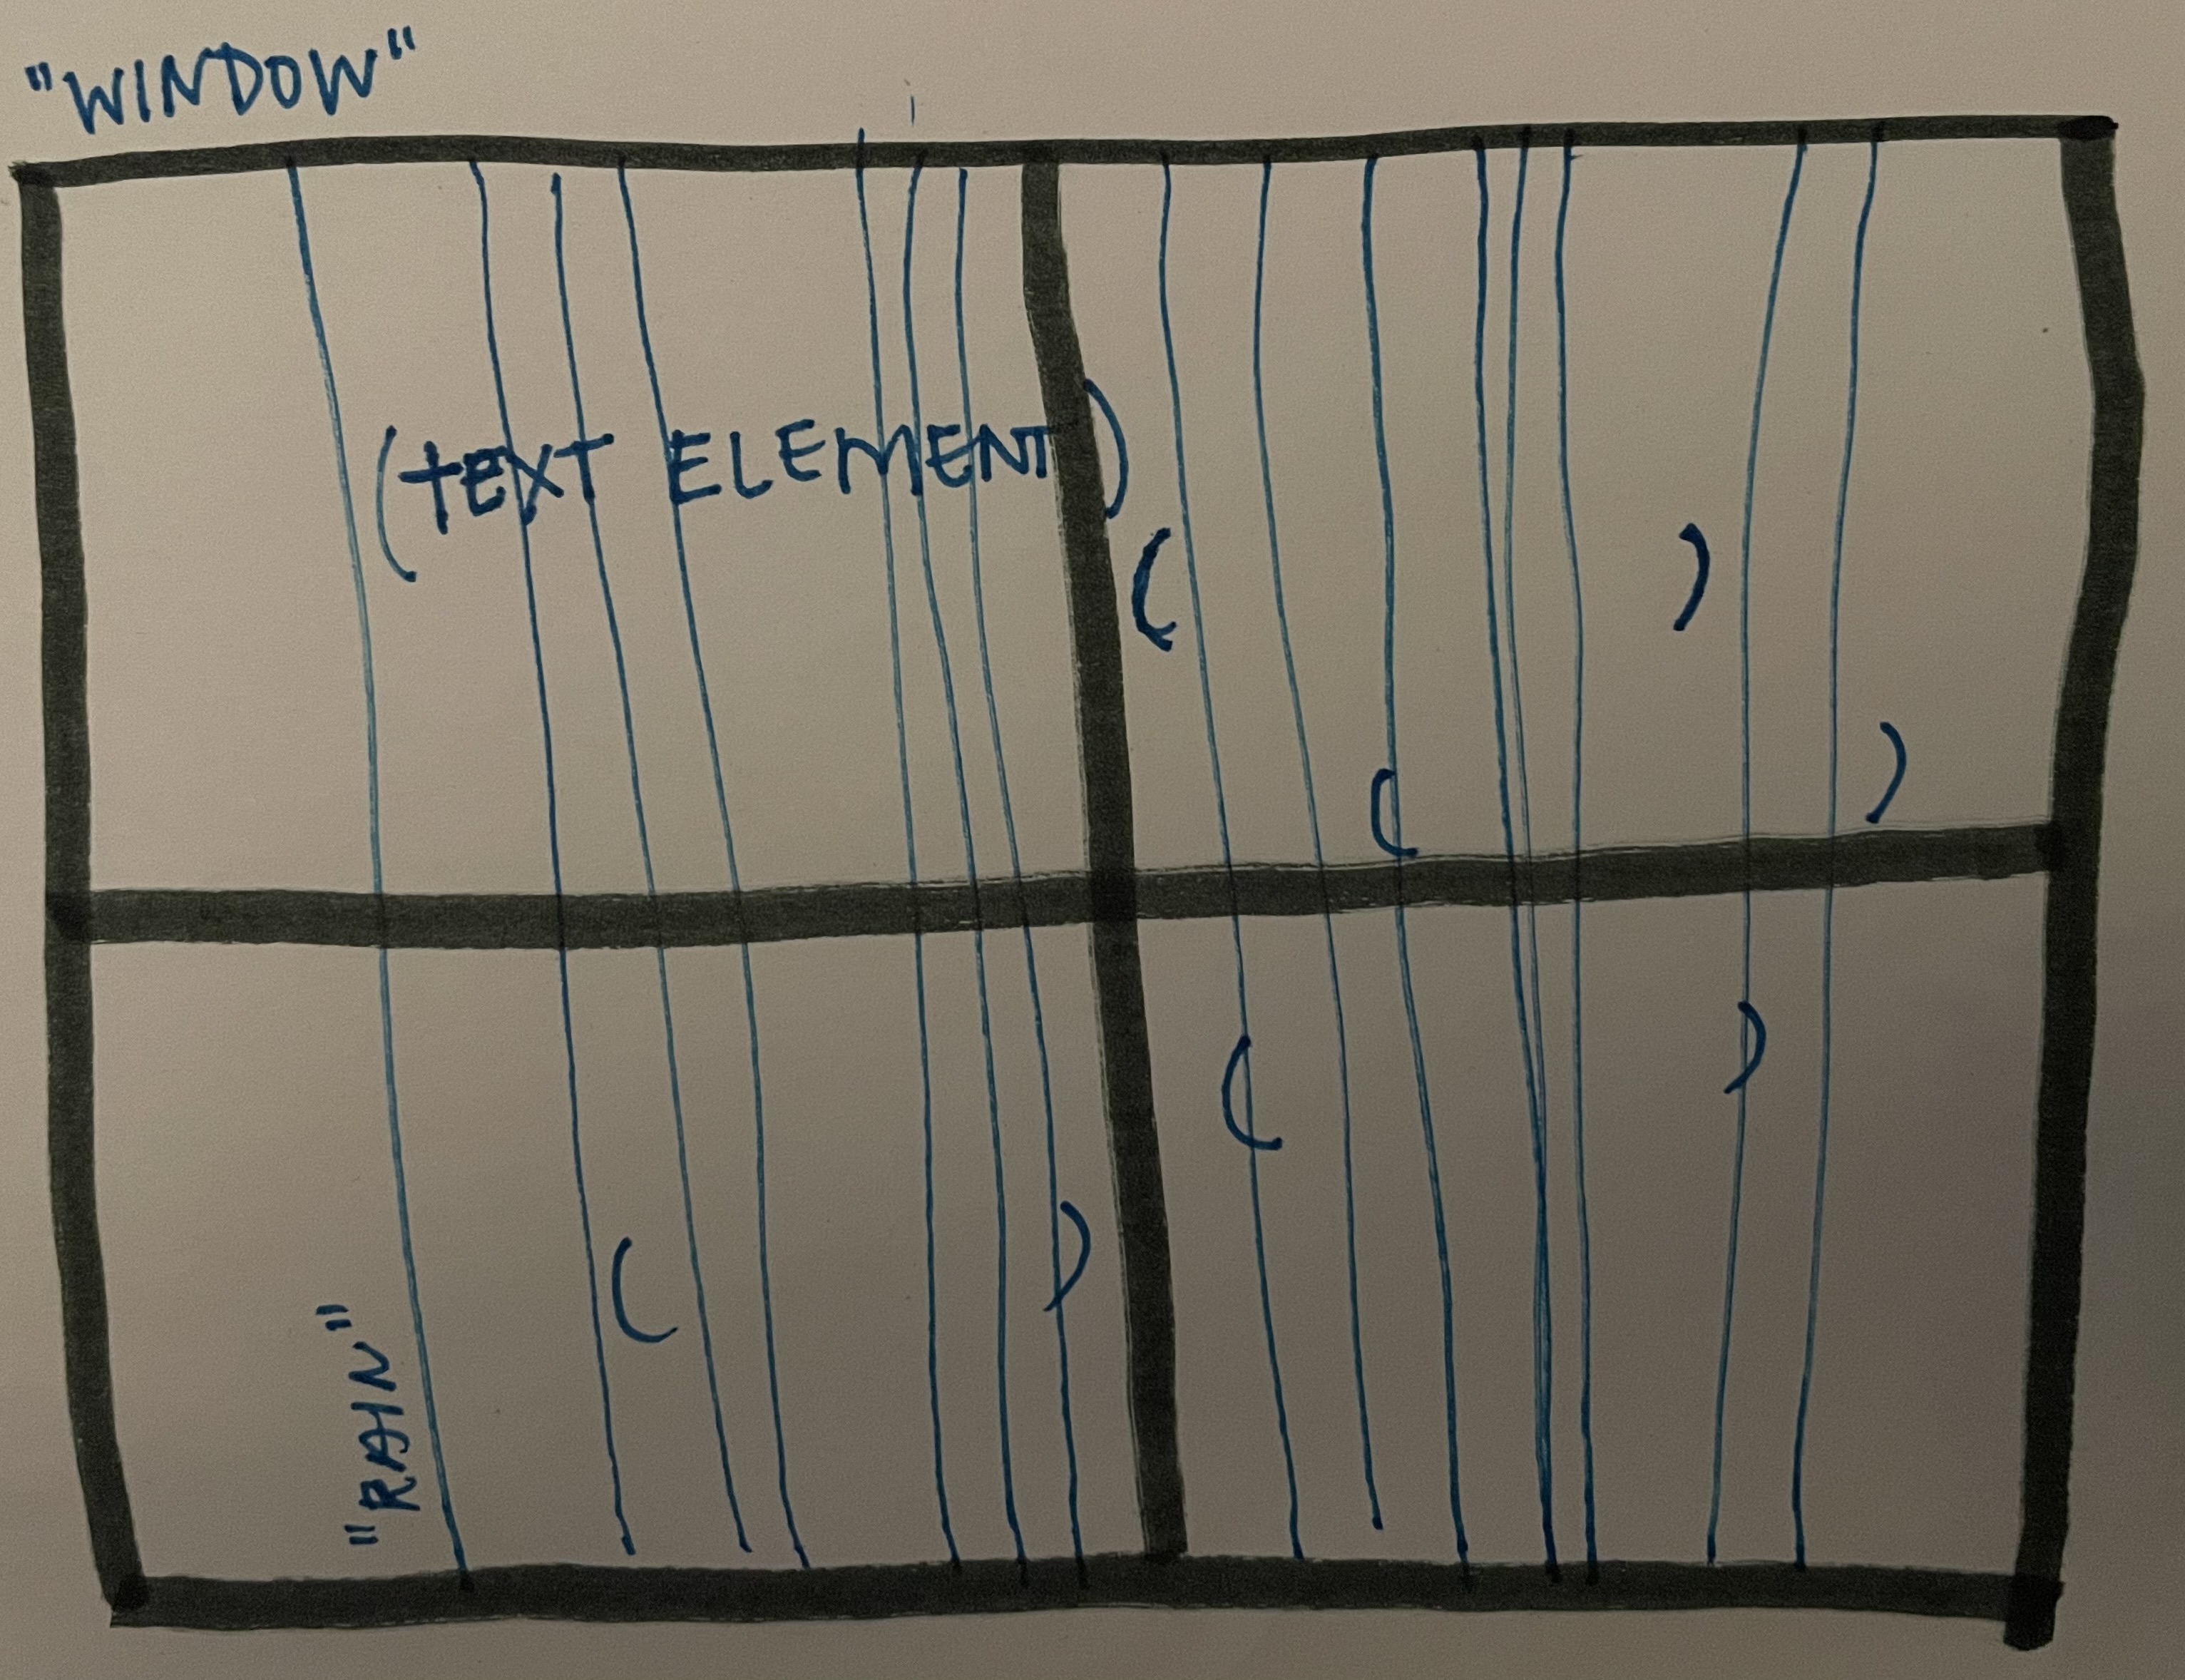 "WINDOW"
(TEXT ELEMENT)
( )
( )
( )
( )
"RAIN"